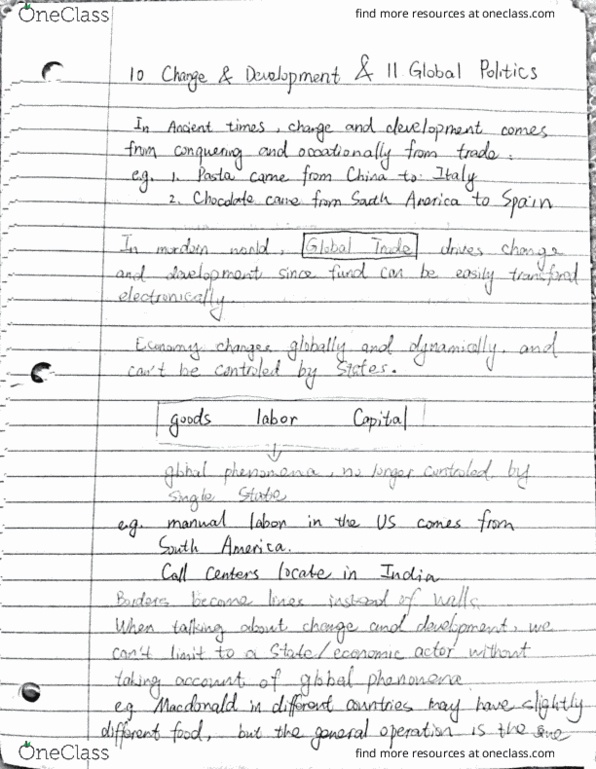 OneClass
find more resources at oneclass.com
10 Change & Development & 11 Global Politics
In Ancient times, change and development comes
from conquering and occationally from trade.
e.g. 1. Pasta came from China to Italy
2. Chocolate came from South America to Spain
In mordern world, Global Trade drives change
and development since fund can be easily transfered
electronically.
Economy changes globally and dynamically, and
can't be controled by States.
goods labor Capital
global phenomena, no longer controled by
single State
e.g. manual labor in the US comes from
South America.
Call Centers locate in India
Borders become lines instead of walls.
When talking about change and development, we
can't limit to a State/economic actor without
taking account of global phenomena.
e.g Macdonald in different countries may have slightly
different food, but the general operation is the same
OneClass
find more resources at oneclass.com